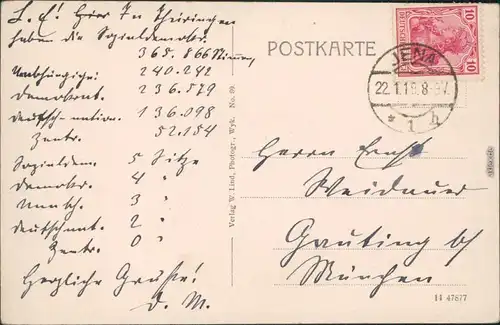 L. E! Hier In Thüringen
haben die Sozialdemokr.
365.866 Stimmen,
Unabhängige: 240.242
Demokrat. 236.579
deutsch-nation. 136.098
Zentr. 52.154
Sozialdem. 5 Sitze
demokr. 4 "
Unabh. 3 "
deutschnat. 2 "
Zentr. 0 "
Herzliche Grüsse!
D. M.
Verlag W. Lind, Photogr., Wyk. No. 99.
POSTKARTE
DEUTSCHES
10 10
JENA
22.1.19. 8-9V.
* 1 h
Herrn Ernst
Weidauer
Gauting b/
München
14 47877